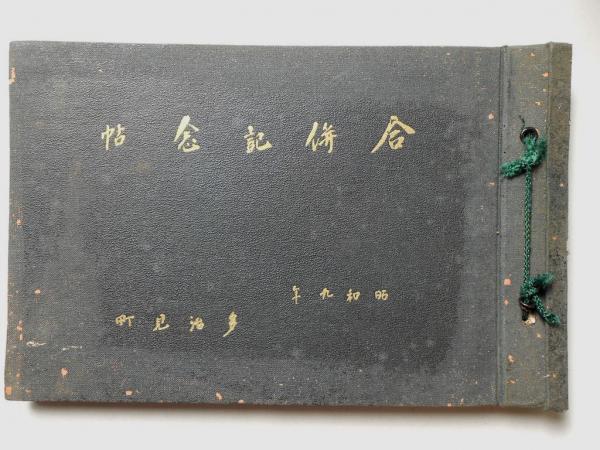 合併記念帖
昭和九年
多治見町